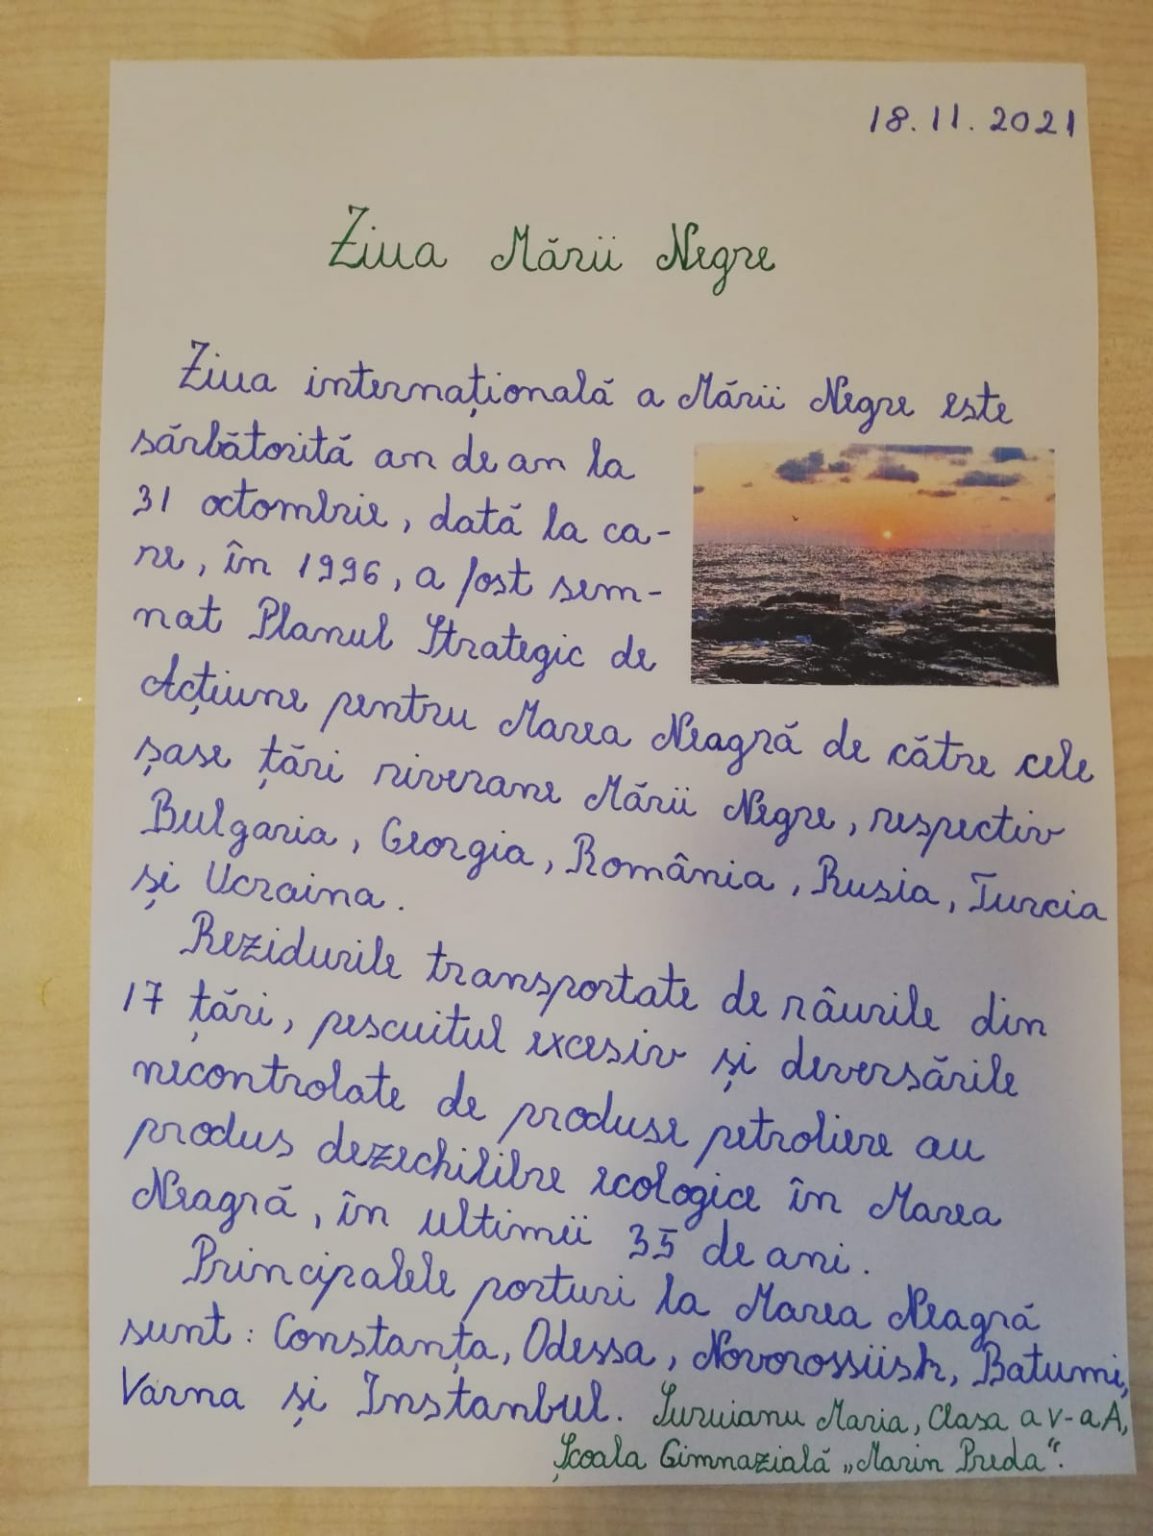 18.11.2021
Ziua Mării Negre
Ziua internațională a Mării Negre este
sărbătorită an de an la
31 octombrie, dată la ca-
re, în 1996, a fost sem-
nat Planul Strategic de
Acțiune pentru Marea Neagră de către cele
șase țări riverane Mării Negre, respectiv
Bulgaria, Georgia, România, Rusia, Turcia
și Ucraina.
Rezidurile transportate de râurile din
17 țări, pescuitul excesiv și deversările
necontrolate de produse petroliere au
produs dezechilibre ecologice în Marea
Neagră, în ultimii 35 de ani.
Principalele porturi la Marea Neagră
sunt: Constanța, Odessa, Novorossiisk, Batumi,
Varna și Instanbul. Maria, Clasa a V-a A,
Școala Gimnazială „Marin Preda“.